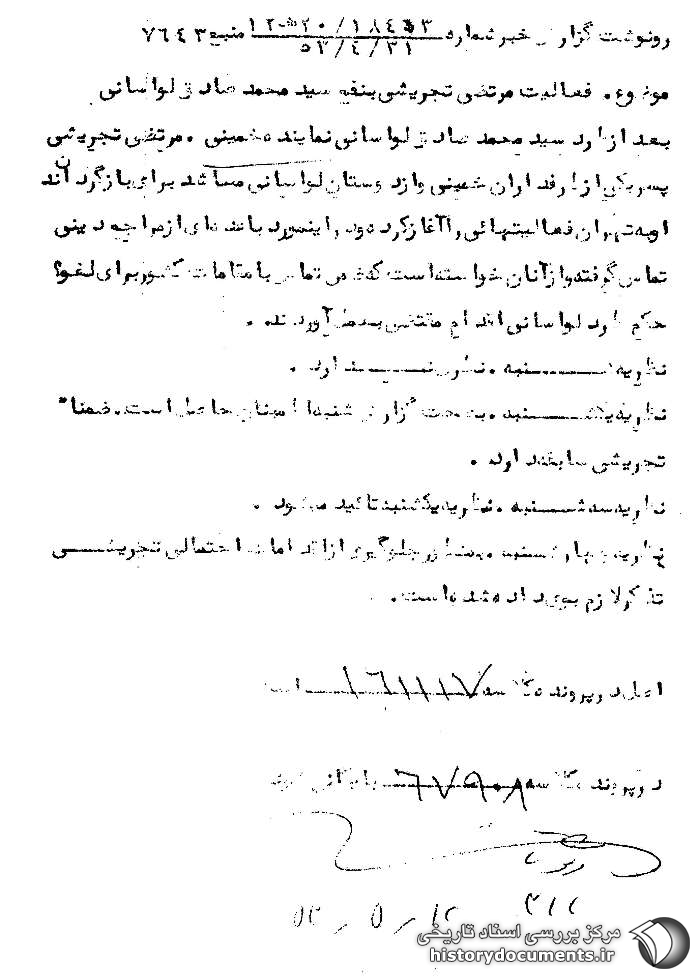 رونوشت گزارش خبر شماره ۱۸۴۴۳/۲۰ ﻫ ۱۲ منبع ۷۶۴۳
۵۳/۴/۳۱
موضوع. فعالیت مرتضی تجریشی بنفع سید محمد صادق لواسانی
بعد از طرد سید محمد صادق لواسانی نماینده خمینی. مرتضی تجریشی
پسر یکی از طرفداران خمینی و از دوستان لواسانی میباشد برای بازگرداندن
او به تهران فعالیتهائی را آغاز کرده و در اینمورد با عده‌ای از مراجع دینی
تماس گرفته و از آنان خواسته است که ضمن تماس با مقامات کشور برای لغو
حکم طرد لواسانی اقدام مقتضی بعمل آورند.
نظریه شنبه. نظری ندارد.
نظریه یکشنبه. به صحت گزارش شنبه اطمینان حاصل است. ضمنا"
تجریشی سابقه دارد.
نظریه سه شنبه. نظریه یکشنبه تائید میشود.
نظریه چهارشنبه. بمنظور جلوگیری از اقدامات احتمالی تجریشی
تذکر لازم بوی داده شده است.
اصل در پرونده کلاسه ۱۶۱۱۱۷ است
در پرونده کلاسه ۶۷۹۰۸ بایگانی شود
۳۱۲
۵۳/۵/۱۲
مرکز بررسی اسناد تاریخی
historydocuments.ir